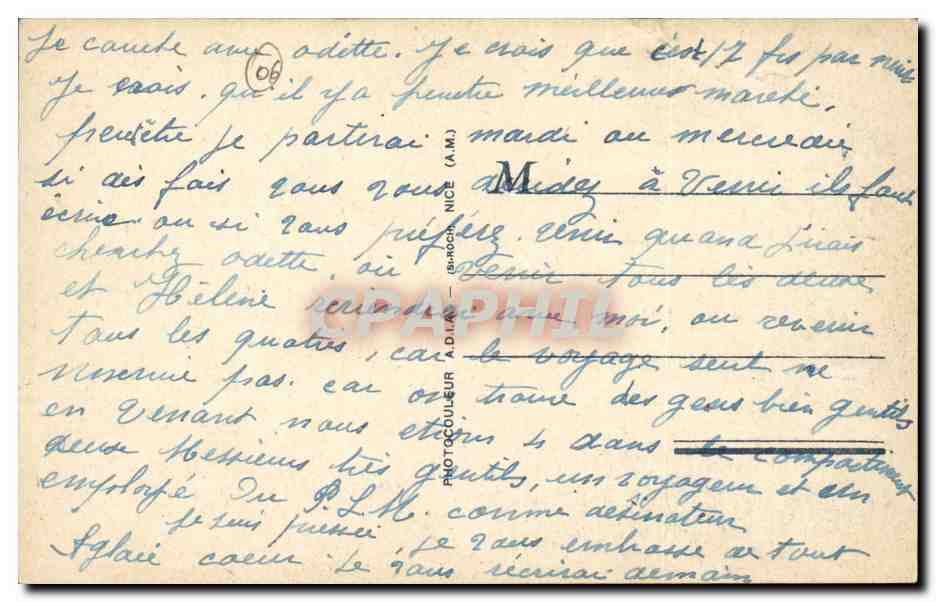 Je couche avec odette. Je crois que c'est 17 frs par nuit
06
Je crois qu'il y a peutetre meilleur marché.
peutetre je partirai mardi ou mercredi
si des fois vous vous décidez à venir il faut
M
écrire ou si vous préférez venir quand j'irais
cherchez odette, ou venir tous les deux
et Hélène reviendrai avec moi, ou revenir
CPAPHIL
tous les quatres, car le voyage seul ne
m'ennuie pas. car on trouve des gens bien gentils
en venant nous etions 4 dans le compartiment
deux Messieurs très gentils, un voyageur et un
employé du P.L.M. comme désinateur
je suis pressée
je vous embrasse de tout
Aglaé coeur je vous récrirai demain
PHOTOCOULEUR A.D.I.A. — (St-ROCH) NICE (A.M.)